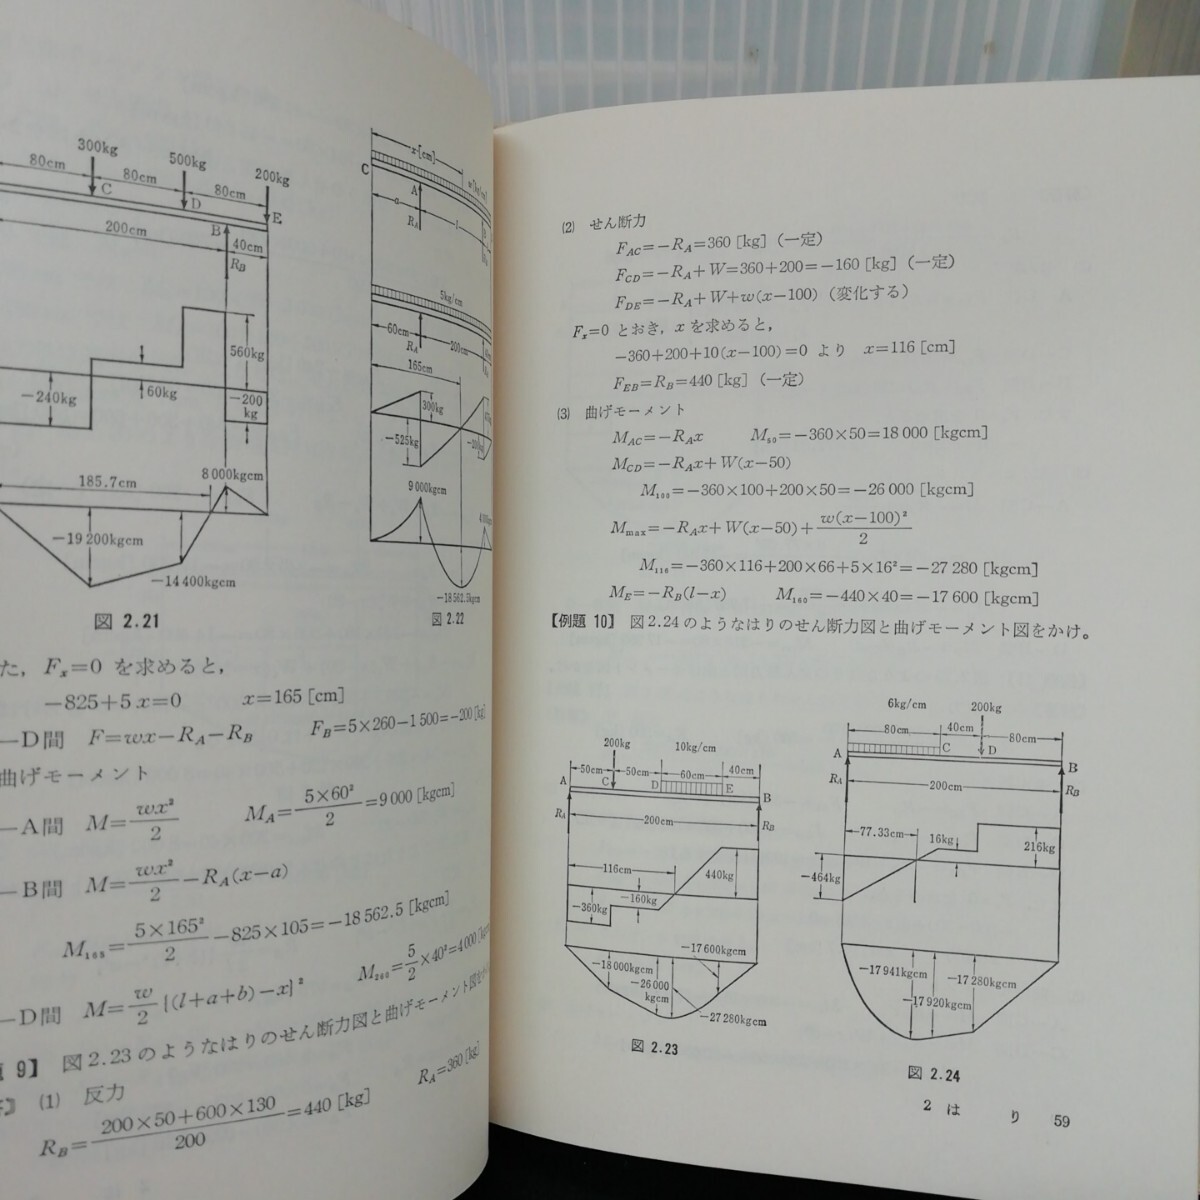 300kg
500kg
200kg
80cm
80cm
80cm
C
D
E
200cm
B
40cm
R_B
560kg
−240kg
60kg
−200
kg
8000kgcm
185.7cm
−19200kgcm
−14400kgcm
図 2.21
x[cm]
C
w[kg/cm]
A
a
R_A
l
5kg/cm
60cm
200cm
R_A
165cm
300kg
−525kg
9000kgcm
−18562.5kgcm
図 2.22
た，F_x=0 を求めると，
−825+5x=0　x=165 [cm]
—D間　F=wx−R_A−R_B　F_B=5×260−1500=−200[kg]
曲げモーメント
—A間　M=wx²/2　M_A=5×60²/2=9000 [kgcm]
—B間　M=wx²/2−R_A(x−a)
M₁₆₅=5×165²/2−825×105=−18562.5 [kgcm]
—D間　M=w/2{(l+a+b)−x}²　M₂₆₀=5/2×40²=4000 [kgcm]
題 9】　図2.23のようなはりのせん断力図と曲げモーメント図を
(1)　反力
R_B=200×50+600×130/200=440 [kg]　R_A=360[kg]
(2)　せん断力
F_AC=−R_A=360 [kg]（一定）
F_CD=−R_A+W=360+200=−160 [kg]（一定）
F_DE=−R_A+W+w(x−100)（変化する）
F_x=0 とおき，x を求めると，
−360+200+10(x−100)=0 より　x=116 [cm]
F_EB=R_B=440 [kg]（一定）
(3)　曲げモーメント
M_AC=−R_Ax　M₅₀=−360×50=18000 [kgcm]
M_CD=−R_Ax+W(x−50)
M₁₀₀=−360×100+200×50=−26000 [kgcm]
M_max=−R_Ax+W(x−50)+w(x−100)²/2
M₁₁₆=−360×116+200×66+5×16²=−27280 [kgcm]
M_E=−R_B(l−x)　M₁₆₀=−440×40=−17600 [kgcm]
【例題 10】　図2.24のようなはりのせん断力図と曲げモーメント図をかけ。
200kg
10kg/cm
50cm
50cm
60cm
40cm
A
C
D
E
B
R_A
200cm
R_B
116cm
440kg
−160kg
−360kg
−17600kgcm
−18000kgcm
−26000
kgcm
−27280kgcm
図 2.23
6kg/cm
200kg
80cm
40cm
80cm
A
C
D
B
R_A
200cm
R_B
77.33cm
16kg
216kg
−464kg
−17941kgcm
−17280kgcm
−17920kgcm
図 2.24
2　は　り　59